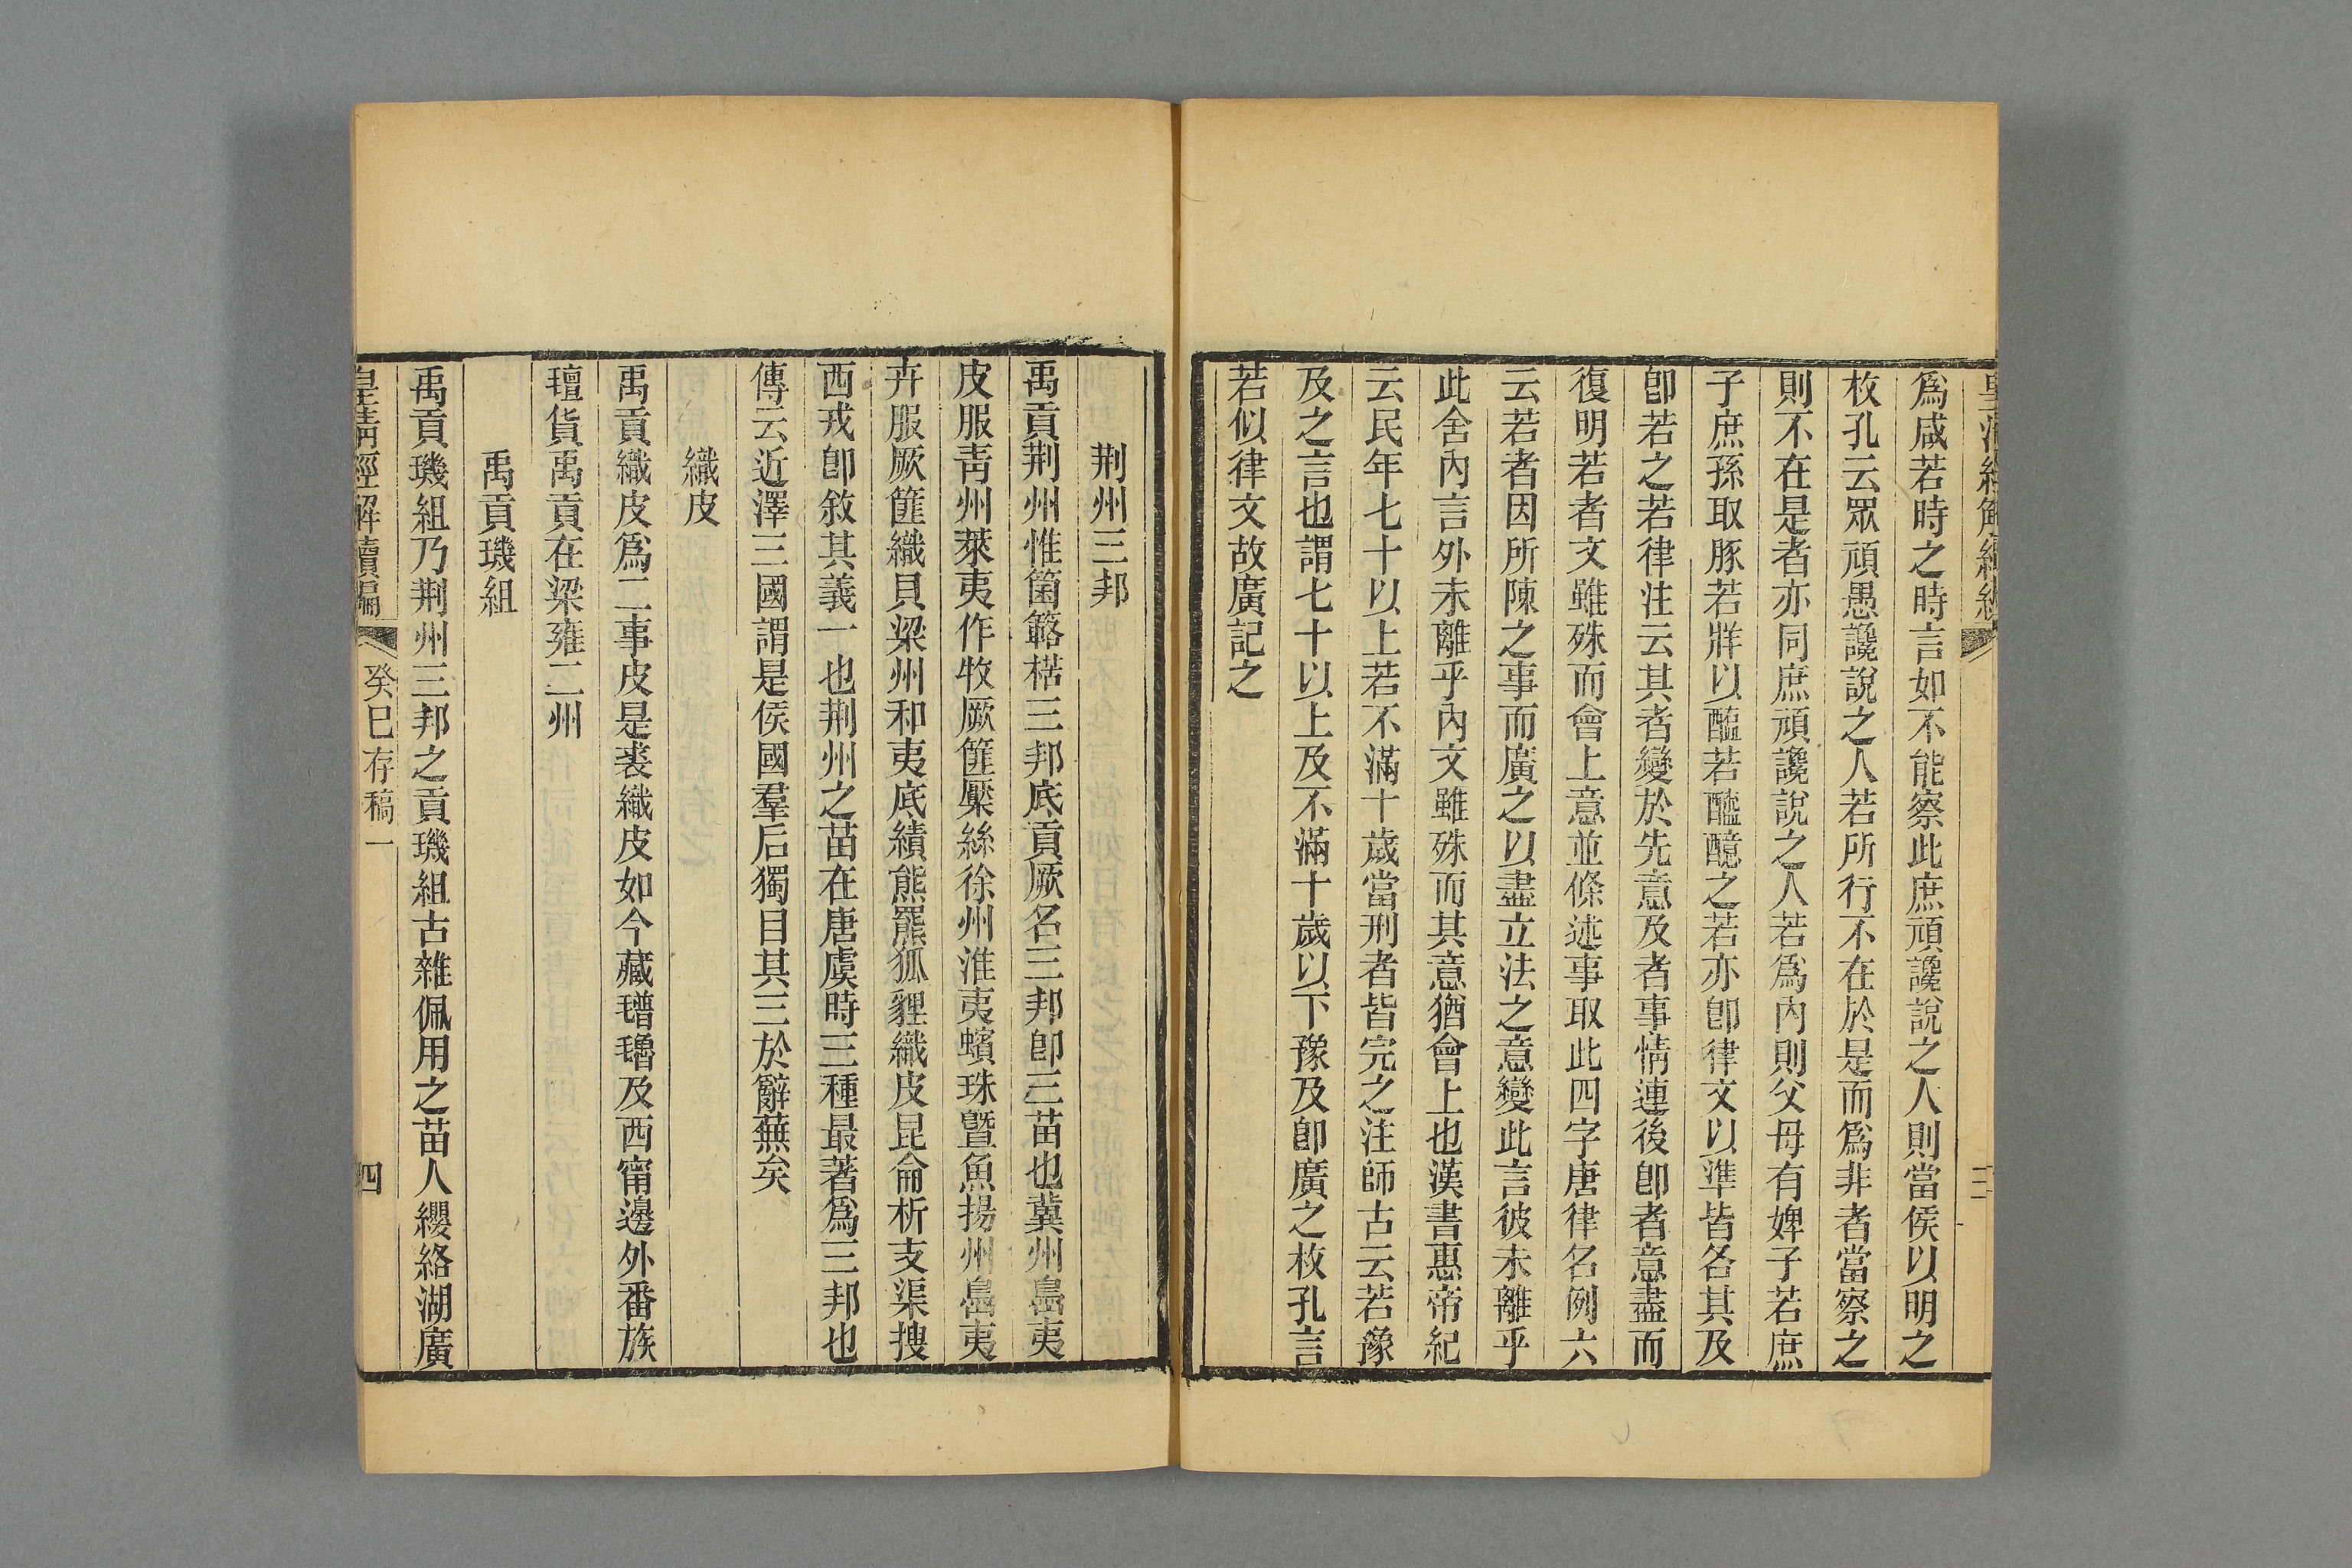 爲咸若時之時言如不能察此庶頑讒說之人則當侯以明之
枚孔云眾頑愚讒說之人若所行不在於是而爲非者當察之
則不在是者亦同庶頑讒說之人若爲內則父母有婢子若庶
子庶孫取豚若牂以醢若醯醷之若亦卽律文以準皆各其及
卽若之若律注云其者變於先意及者事情連後卽者意盡而
復明若者文雖殊而會上意並條述事取此四字唐律名例六
云若者因所陳之事而廣之以盡立法之意變此言彼未離乎
此舍內言外未離乎內文雖殊而其意猶會上也漢書惠帝紀
云民年七十以上若不滿十歲當刑者皆完之注師古云若豫
及之言也謂七十以上及不滿十歲以下豫及卽廣之枚孔言
若似律文故廣記之
三
荆州三邦
禹貢荆州惟箘簵楛三邦底貢厥名三邦卽三苗也冀州島夷
皮服靑州萊夷作牧厥篚檿絲徐州淮夷蠙珠曁魚揚州島夷
卉服厥篚織貝梁州和夷底績熊羆狐貍織皮昆侖析支渠搜
西戎卽敘其義一也荆州之苗在唐虞時三種最著爲三邦也
傳云近澤三國謂是侯國羣后獨目其三於辭蕪矣
織皮
禹貢織皮爲二事皮是裘織皮如今藏氆氇及西甯邊外番族
氊貨禹貢在梁雍二州
禹貢璣組
禹貢璣組乃荆州三邦之貢璣組古雜佩用之苗人纓絡湖廣
皇淸經解續編
癸巳存稿一
四